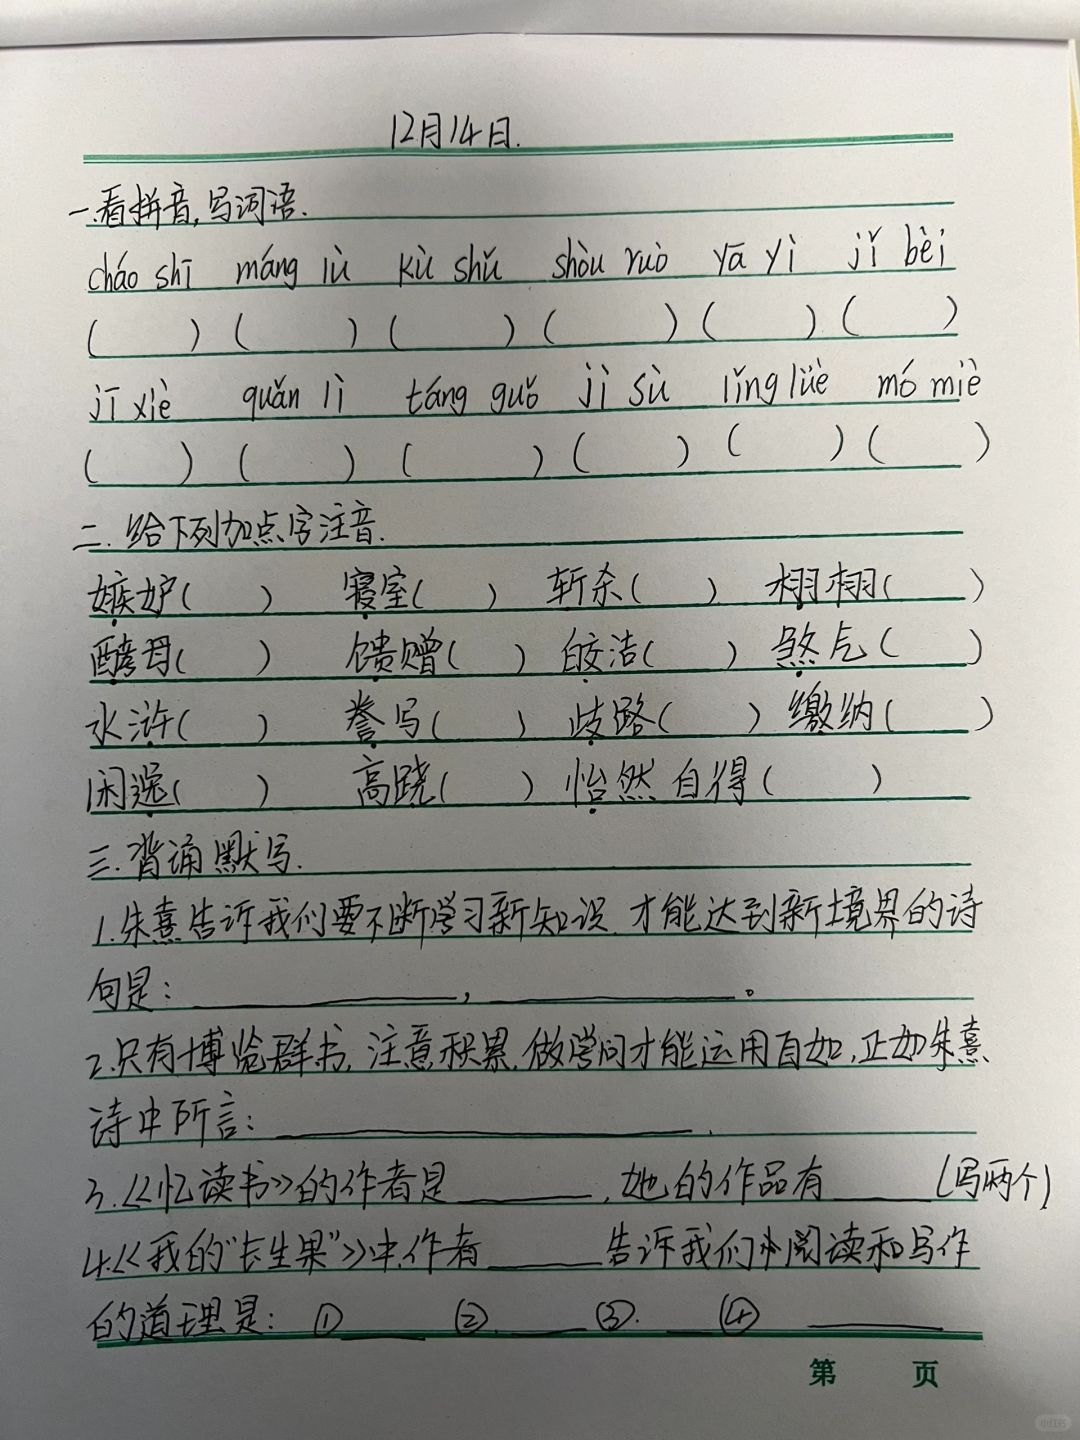 12月14日.
一.看拼音,写词语.
cháo shī máng lù kù shǔ shòu ruò yā yì jǐ bèi
( ) ( ) ( ) ( ) ( ) ( )
jī xiè quǎn lì táng guǒ jì sù lǐng lüè mó miè
( ) ( ) ( ) ( ) ( ) ( )
二.给下列加点字注音.
嫉妒( ) 寝室( ) 斩杀( ) 栩栩( )
酵母( ) 馈赠( ) 皎洁( ) 煞气( )
水浒( ) 誊写( ) 歧路( ) 缴纳( )
闲逸( ) 高跷( ) 怡然自得( )
三.背诵默写.
1.朱熹告诉我们要不断学习新知识,才能达到新境界的诗
句是: ________,________。
2.只有博览群书,注意积累,做学问才能运用自如,正如朱熹
诗中所言:____________.
3.《忆读书》的作者是______,她的作品有____(写两个)
4.《我的"长生果"》中,作者_____告诉我们阅读和写作
的道理是: ①____ ②.____ ③.___ ④ _____
第 页
小红书